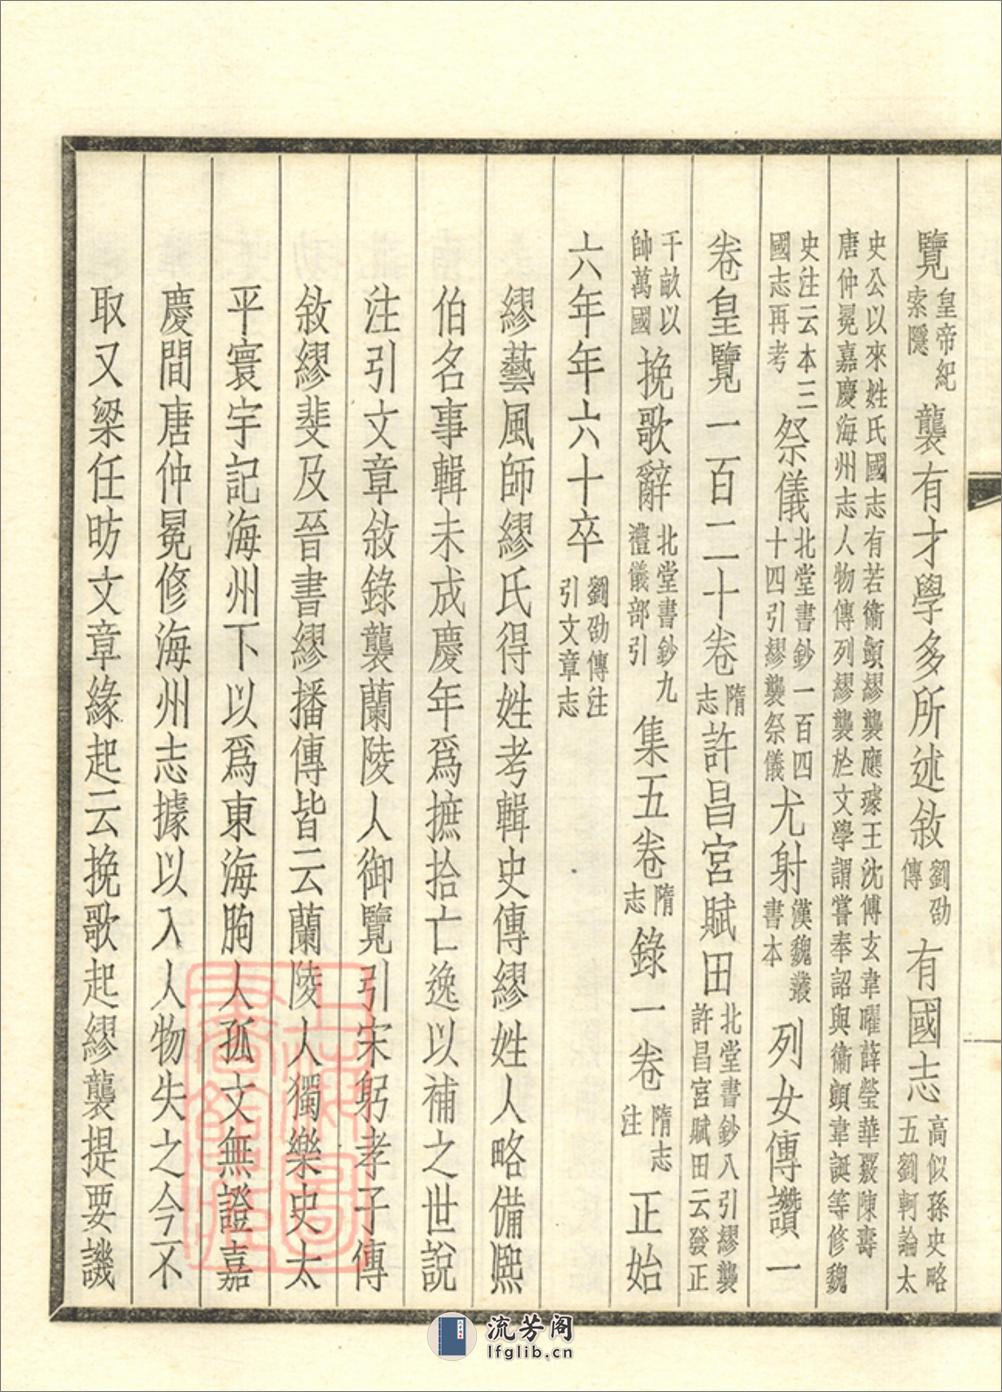 覽皇帝紀索隱襲有才學多所述敘劉劭傳有國志高似孫史略五劉軻論太
史公以來姓氏國志有若衞顗繆襲應璩王沈傅玄韋曜薛瑩華覈陳壽唐仲冕嘉慶海州志人物傳列繆襲於文學謂嘗奉詔與衞顗韋誕等修魏
史注云本三國志再考祭儀北堂書鈔一百四十四引繆襲祭儀尤射漢魏叢書本列女傳讚一
卷皇覽一百二十卷隋志許昌宮賦田北堂書鈔八引繆襲許昌宮賦田云發正
千畝以帥萬國挽歌辭北堂書鈔九禮儀部引集五卷隋志錄一卷隋志注正始
六年年六十卒劉劭傳注引文章志
繆藝風師繆氏得姓考輯史傳繆姓人略備熙
伯名事輯未成慶年爲摭拾亡逸以補之世說
注引文章敘錄襲蘭陵人御覽引宋躬孝子傳
敘繆斐及晉書繆播傳皆云蘭陵人獨樂史太
平寰宇記海州下以爲東海朐人孤文無證嘉
慶間唐仲冕修海州志據以入人物失之今不
取又梁任昉文章緣起云挽歌起繆襲提要譏
流芳阁
lfglib.cn